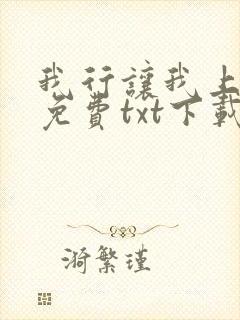 我行讓我上
免費txt下載
漪繁瑾